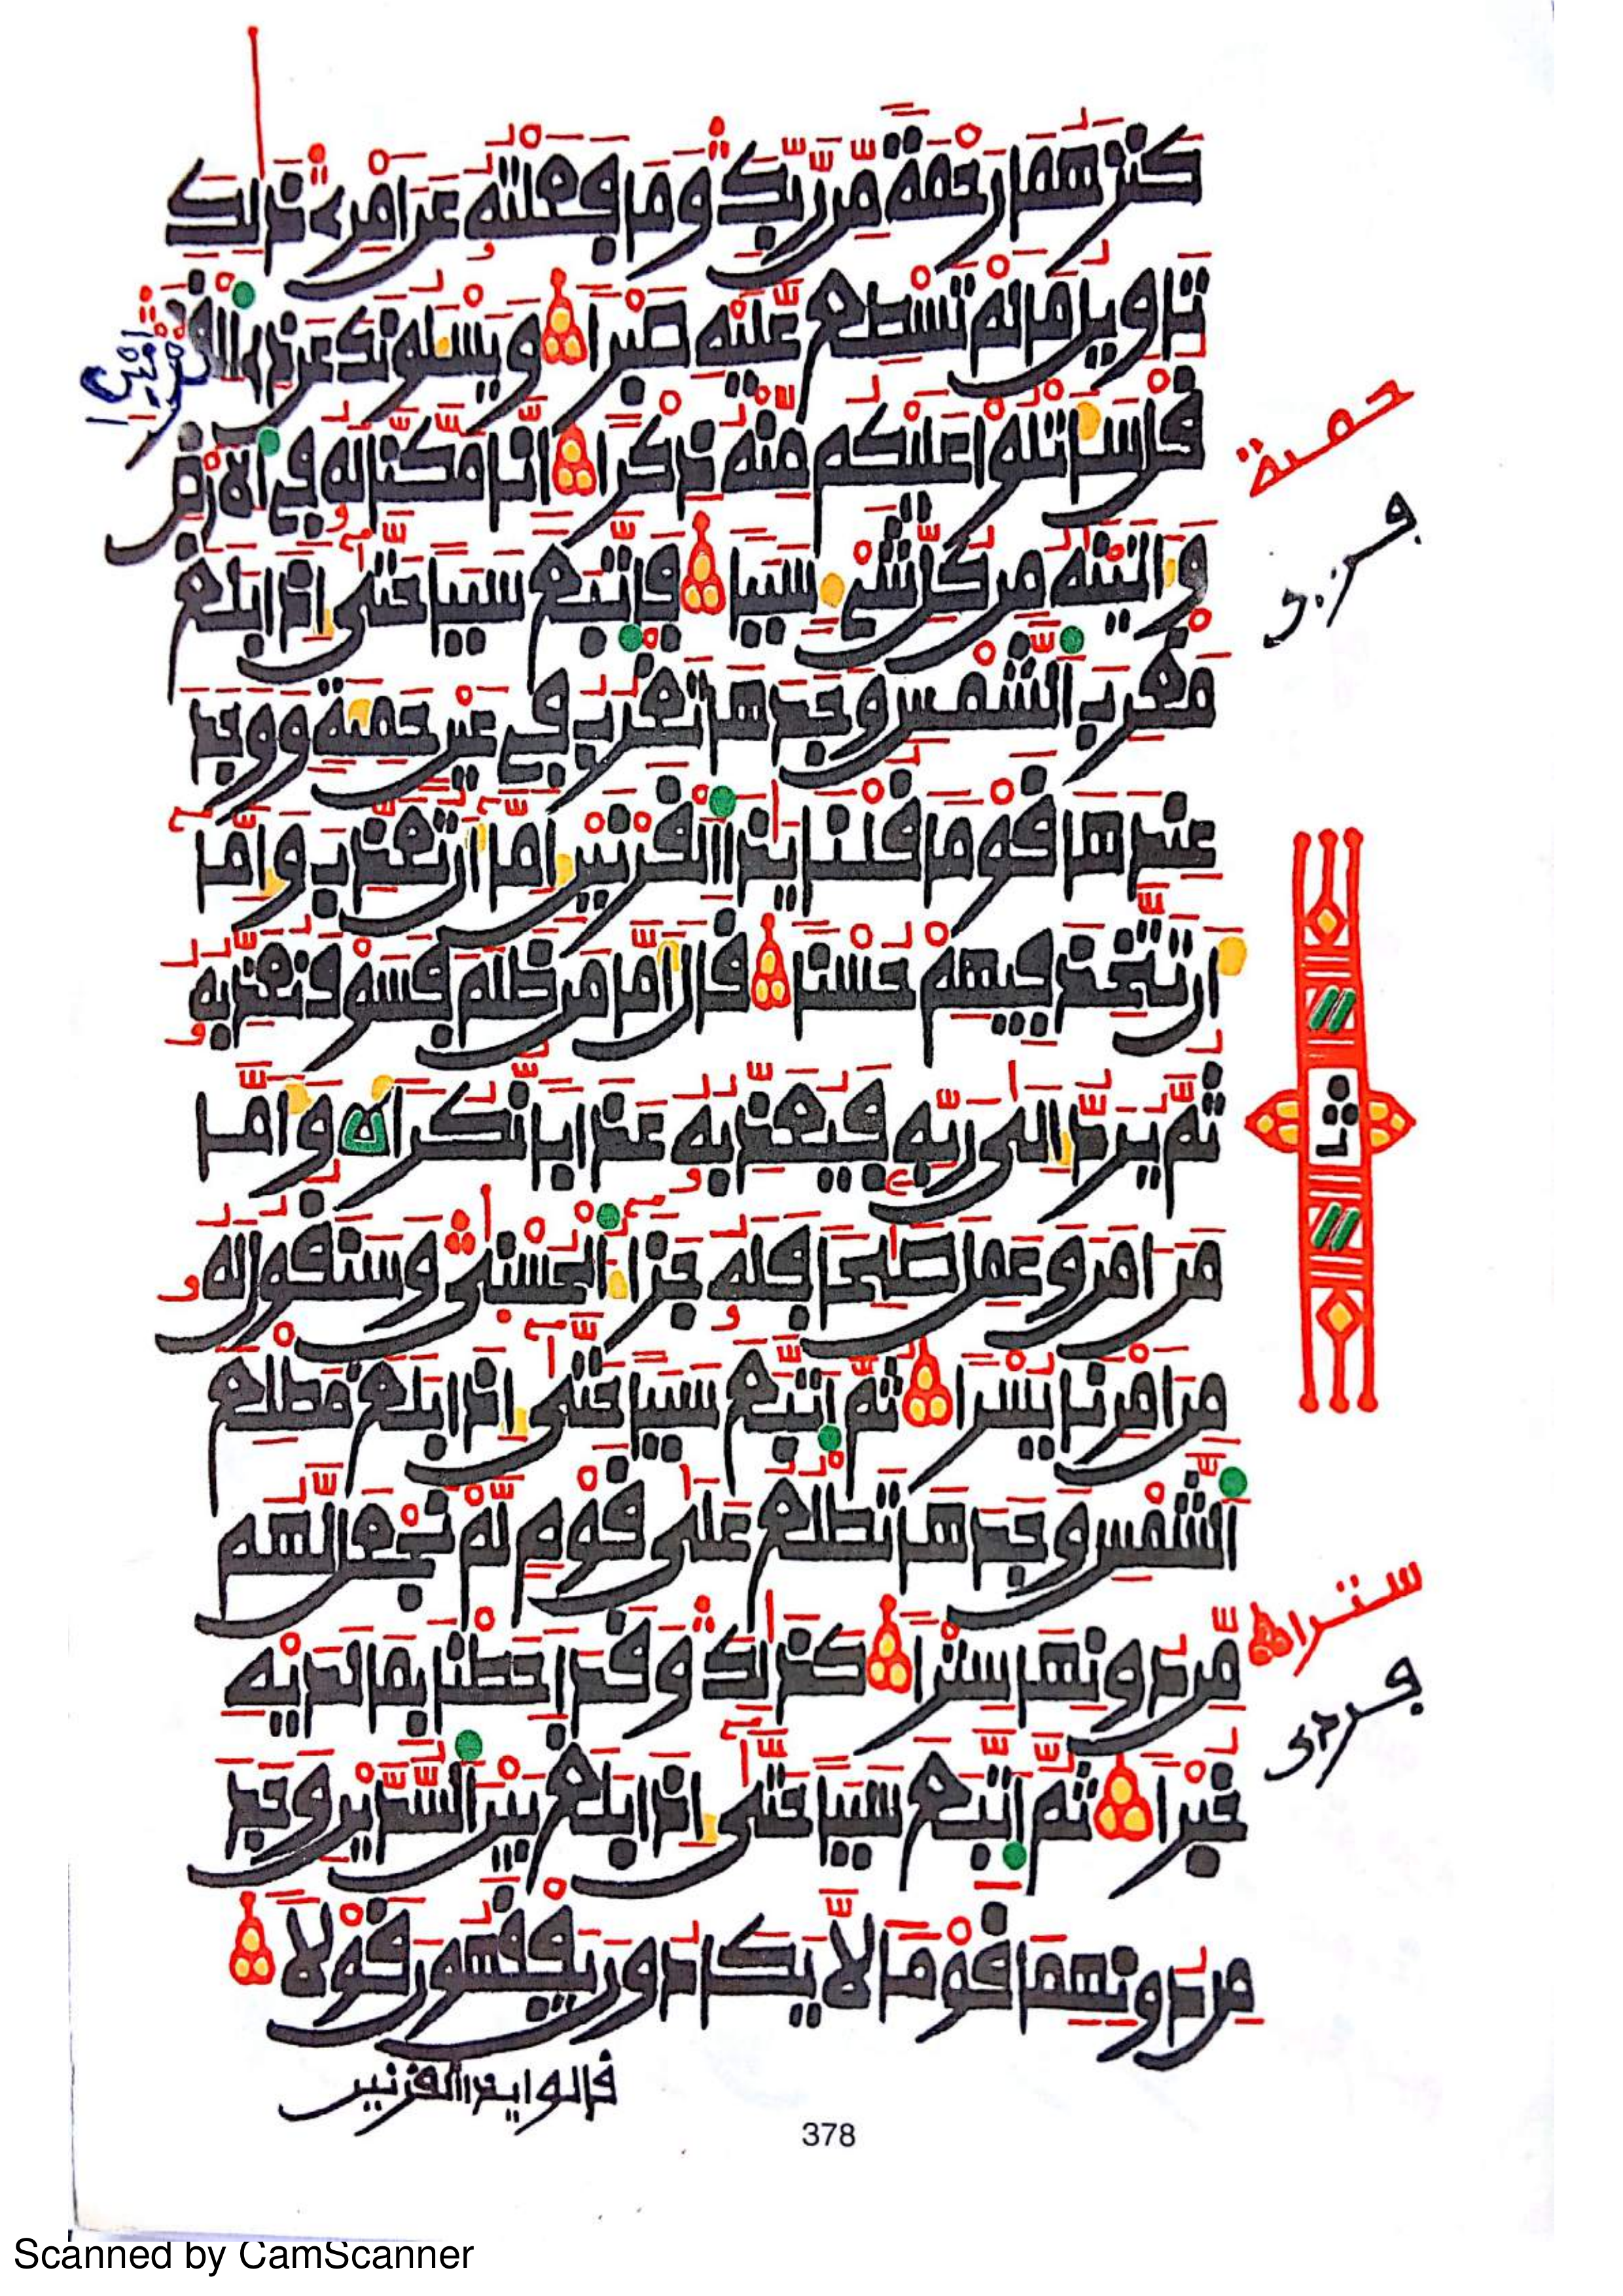 كنزهما رحمة من ربك وما فعلته عن امرى ذلك
تاويل ما لم تسطع عليه صبرا ويسلونك عن ذى القرنين
قل ساتلوا عليكم منه ذكرا انا مكنا له فى الارض
واتينه من كل شىء سببا فاتبع سببا حتى اذا بلغ
مغرب الشمس وجدها تغرب فى عين حمية ووجد
عندها قوما قلنا يذا القرنين اما ان تعذب واما
ان تتخذ فيهم حسنا قال اما من ظلم فسوف نعذبه
ثم يرد الى ربه فيعذبه عذابا نكرا واما
من امن وعمل صلحا فله جزاء الحسنى وسنقول له
من امرنا يسرا ثم اتبع سببا حتى اذا بلغ مطلع
الشمس وجدها تطلع على قوم لم نجعل لهم
من دونها سترا كذلك وقد احطنا بما لديه
خبرا ثم اتبع سببا حتى اذا بلغ بين السدين وجد
من دونهما قوما لا يكادون يفقهون قولا
قالوا يذا القرنين
378
حمية
سترا
Scanned by CamScanner